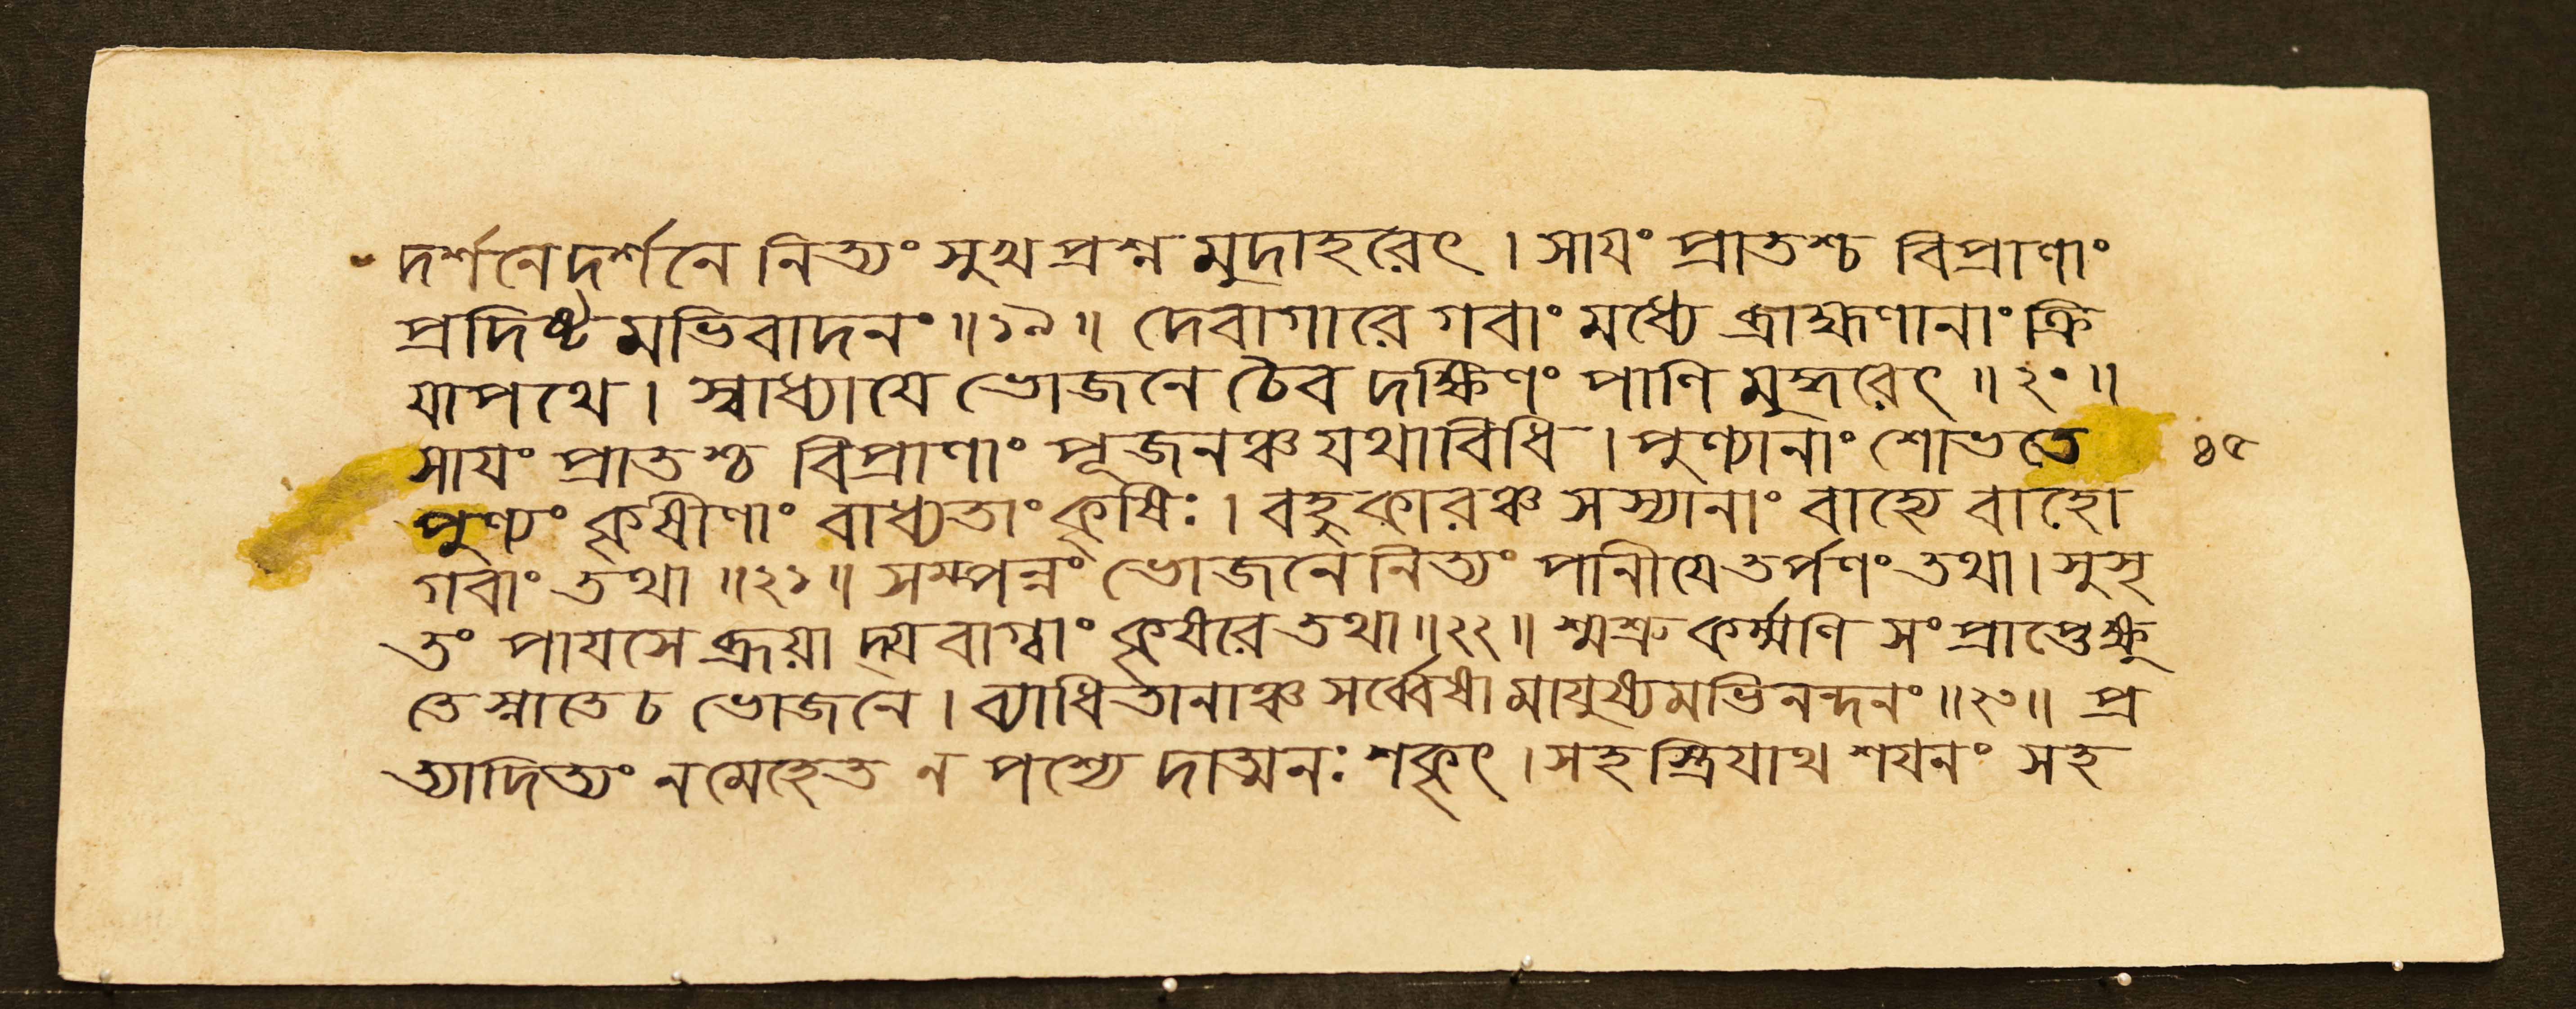 দর্শনেদর্শনে নিত্যং সুখপ্রশ্ন মুদাহরেৎ । সাযং প্রাতশ্চ বিপ্রাণাং
প্রদিষ্ট মভিবাদনং ॥১৯॥ দেবাগারে গবাং মধ্যে ব্রাহ্মণানাং ক্রি
যাপথে । স্বাধ্যাযে ভোজনে চৈব দক্ষিণং পাণি মুদ্ধরেৎ ॥২০॥
সাযং প্রাতশ্চ বিপ্রাণাং পূজনঞ্চ যথাবিধি । পুণ্যানাং শোভতে
৪৫
পুণ্যং কৃষীণাং বাধ্যতাং কৃষিঃ । বহুকারঞ্চ সস্যানাং বাহ্যে বাহো
গবাং তথা ॥২১॥ সম্পন্নং ভোজনে নিত্যং পানীযে তর্পণং তথা । সুসৃ
তং পাযসে ব্রূয়া দ্যবাগ্বাং কৃষরে তথা ॥২২॥ শ্মশ্রুকর্ম্মণি সংপ্রাপ্তে ক্ষু
তে স্নাতে চ ভোজনে । ব্যাধিতানাঞ্চ সর্ব্বেষা মাযুষ্যমভিনন্দনং ॥২৩॥ প্র
ত্যাদিত্যং নমেহেত ন পশ্যে দাত্মনঃ শকৃৎ । সহ স্ত্রিযাথ শযনং সহ